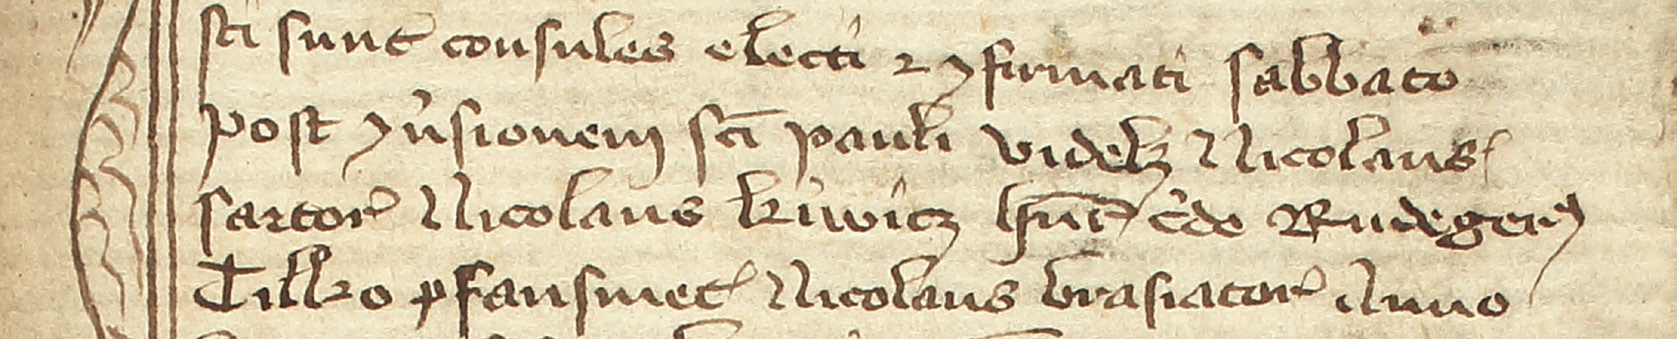 sci sunt consules electi et ꝯfirmati sabbato
post ꝯv̉sionem sci̅ pauli videlꝫ Nicolaus
sartor Nicolaus kuwicz Rudegerꝰ
Tilko pfansmet Nicolaus brasiator Anno